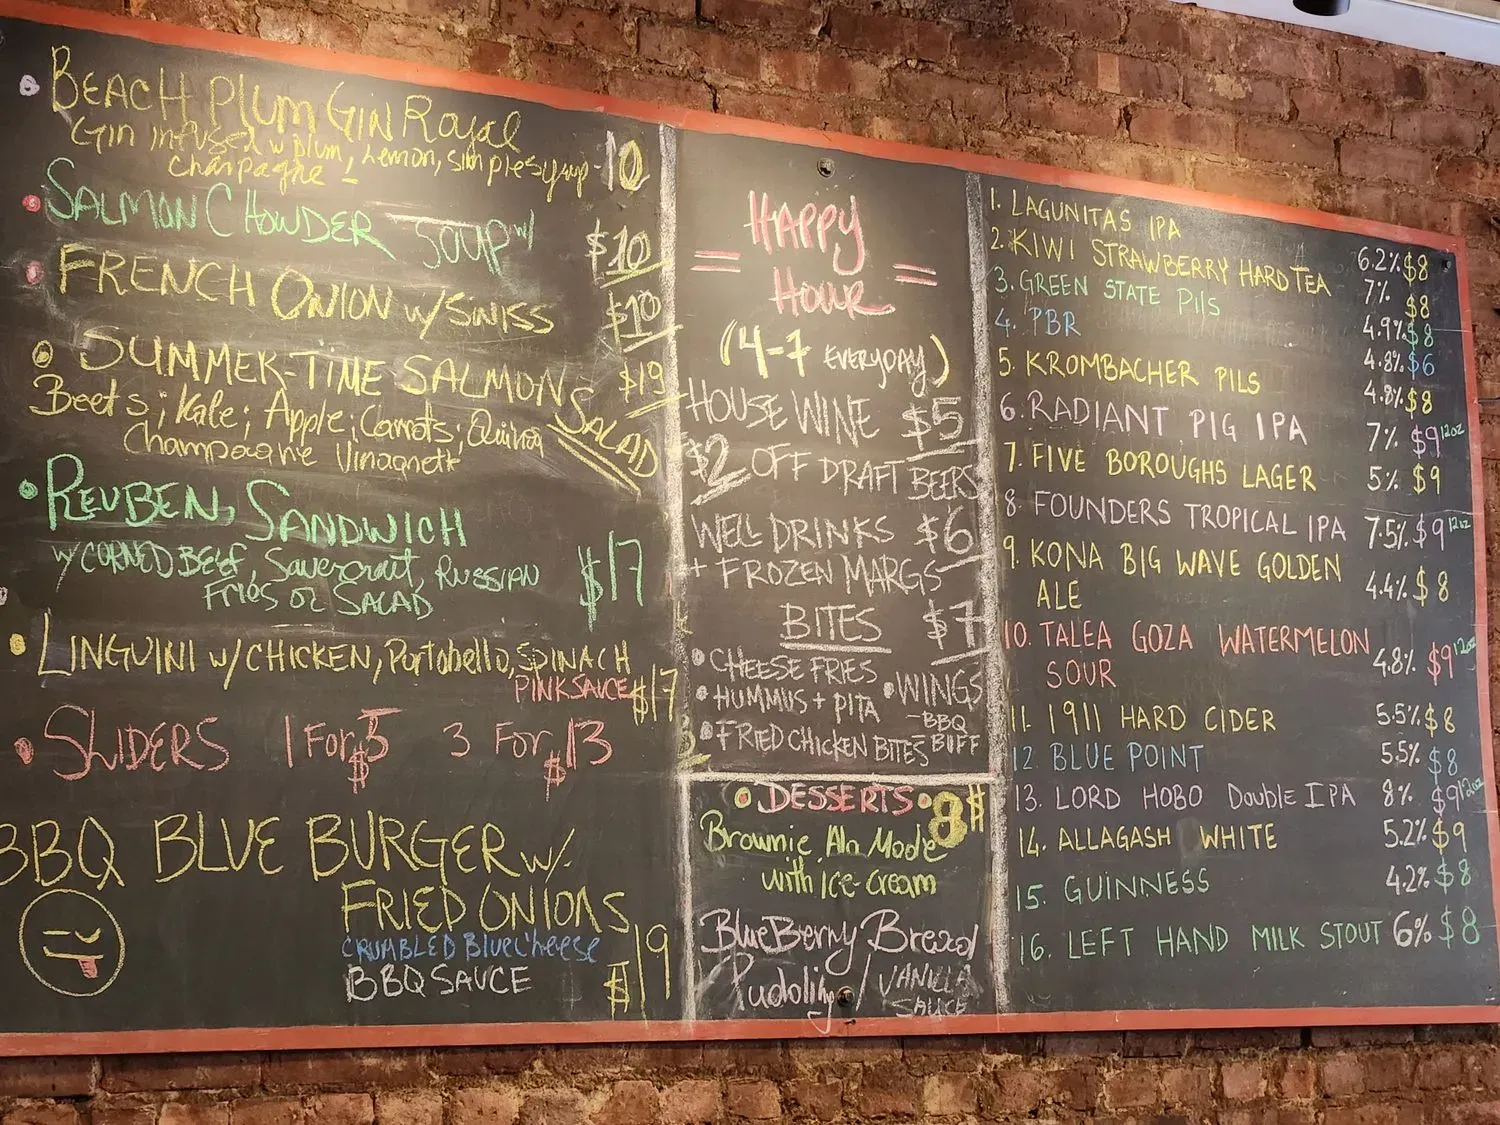 BEACH Plum GIN Royal
Gin infused w plum, Lemon, simple syrup - 10
Champagne
SALMON CHOWDER SOUP w/ $10
FRENCH ONION w/ SWISS $10
SUMMER-TIME SALMON SALAD $19
Beets; Kale; Apple; Carrots; Quinoa
Champagne Vinagrett
REUBEN, SANDWICH
w/ CORNED BEEF, Sauercraut, RUSSIAN $17
FRIES OR SALAD
LINGUINI w/ CHICKEN, Portobello, SPINACH
PINK SAUCE $17
SLIDERS 1 For $5 3 For $13
BBQ BLUE BURGER w/
FRIED ONIONS
CRUMBLED Blue Cheese
BBQ SAUCE $19
= HAPPY =
HOUR
(4-7 EVERYDAY)
HOUSE WINE $5
$2 OFF DRAFT BEERS
WELL DRINKS $6
+ FROZEN MARGS
BITES $7
• CHEESE FRIES
• HUMMUS + PITA
• FRIED CHICKEN BITES
• WINGS
- BBQ
- BUFF
• DESSERTS • 8$
Brownie Ala Mode
with Ice-Cream
BlueBerry Bread
Pudding / VANILLA
SAUCE
1. LAGUNITAS IPA 6.2% $8
2. KIWI STRAWBERRY HARD TEA 7% $8
3. GREEN STATE PILS 4.9% $8
4. PBR 4.8% $6
5. KROMBACHER PILS 4.8% $8
6. RADIANT PIG IPA 7% $9 12oz
7. FIVE BOROUGHS LAGER 5% $9
8. FOUNDERS TROPICAL IPA 7.5% $9 12oz
9. KONA BIG WAVE GOLDEN
ALE 4.4% $8
10. TALEA GOZA WATERMELON
SOUR 4.8% $9 12oz
11. 1911 HARD CIDER 5.5% $8
12. BLUE POINT 5.5% $8
13. LORD HOBO DOUBLE IPA 8% $9 12oz
14. ALLAGASH WHITE 5.2% $9
15. GUINNESS 4.2% $8
16. LEFT HAND MILK STOUT 6% $8